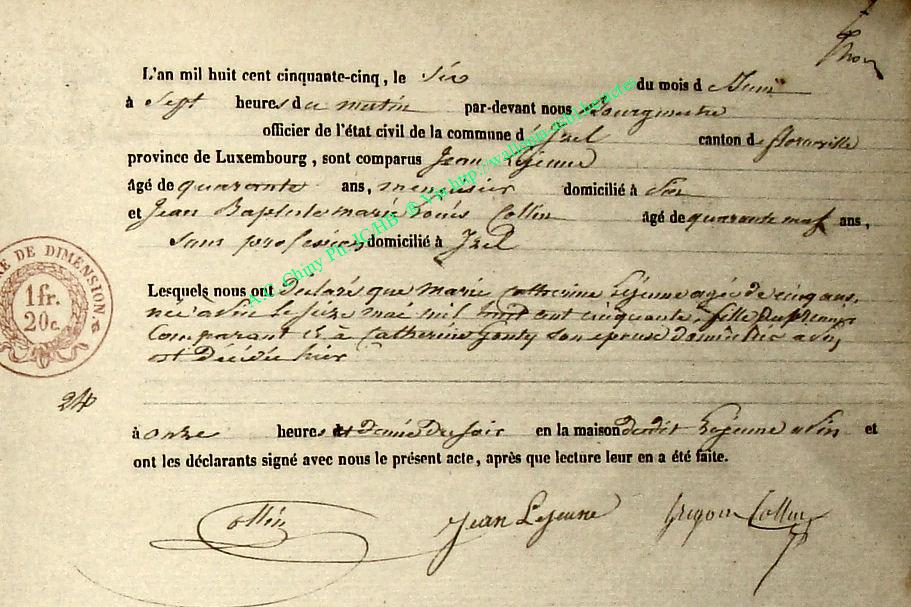 L'an mil huit cent cinquante-cinq, le Six du mois d Juin
à Sept heures du matin par-devant nous Bourgmestre
officier de l'état civil de la commune d'Izel canton de florenville
province de Luxembourg, sont comparus Jean Lejeune
âgé de quarante ans, menuisier domicilié à Pin
et Jean Baptiste marie Louis Collin âgé de quarante neuf ans,
Sans profession domicilié à Izel
Lesquels nous ont Déclaré que Marie Catherine Lejeune agée de cinq ans,
née à Pin le seize mai mil huit cent cinquante, fille du premier
Comparant et à Catherine son épouse domiciliés a Pin,
est Décédée hier
à onze heures et demie Du soir en la maison dudit Lejeune a Pin et
ont les déclarants signé avec nous le présent acte, après que lecture leur en a été faite.
Collin Jean Lejeune Collin
DE DIMENSION.
1 fr.
20 c.
24
A.C. Chiny Ph JC/HB ® Via http://wallonia-